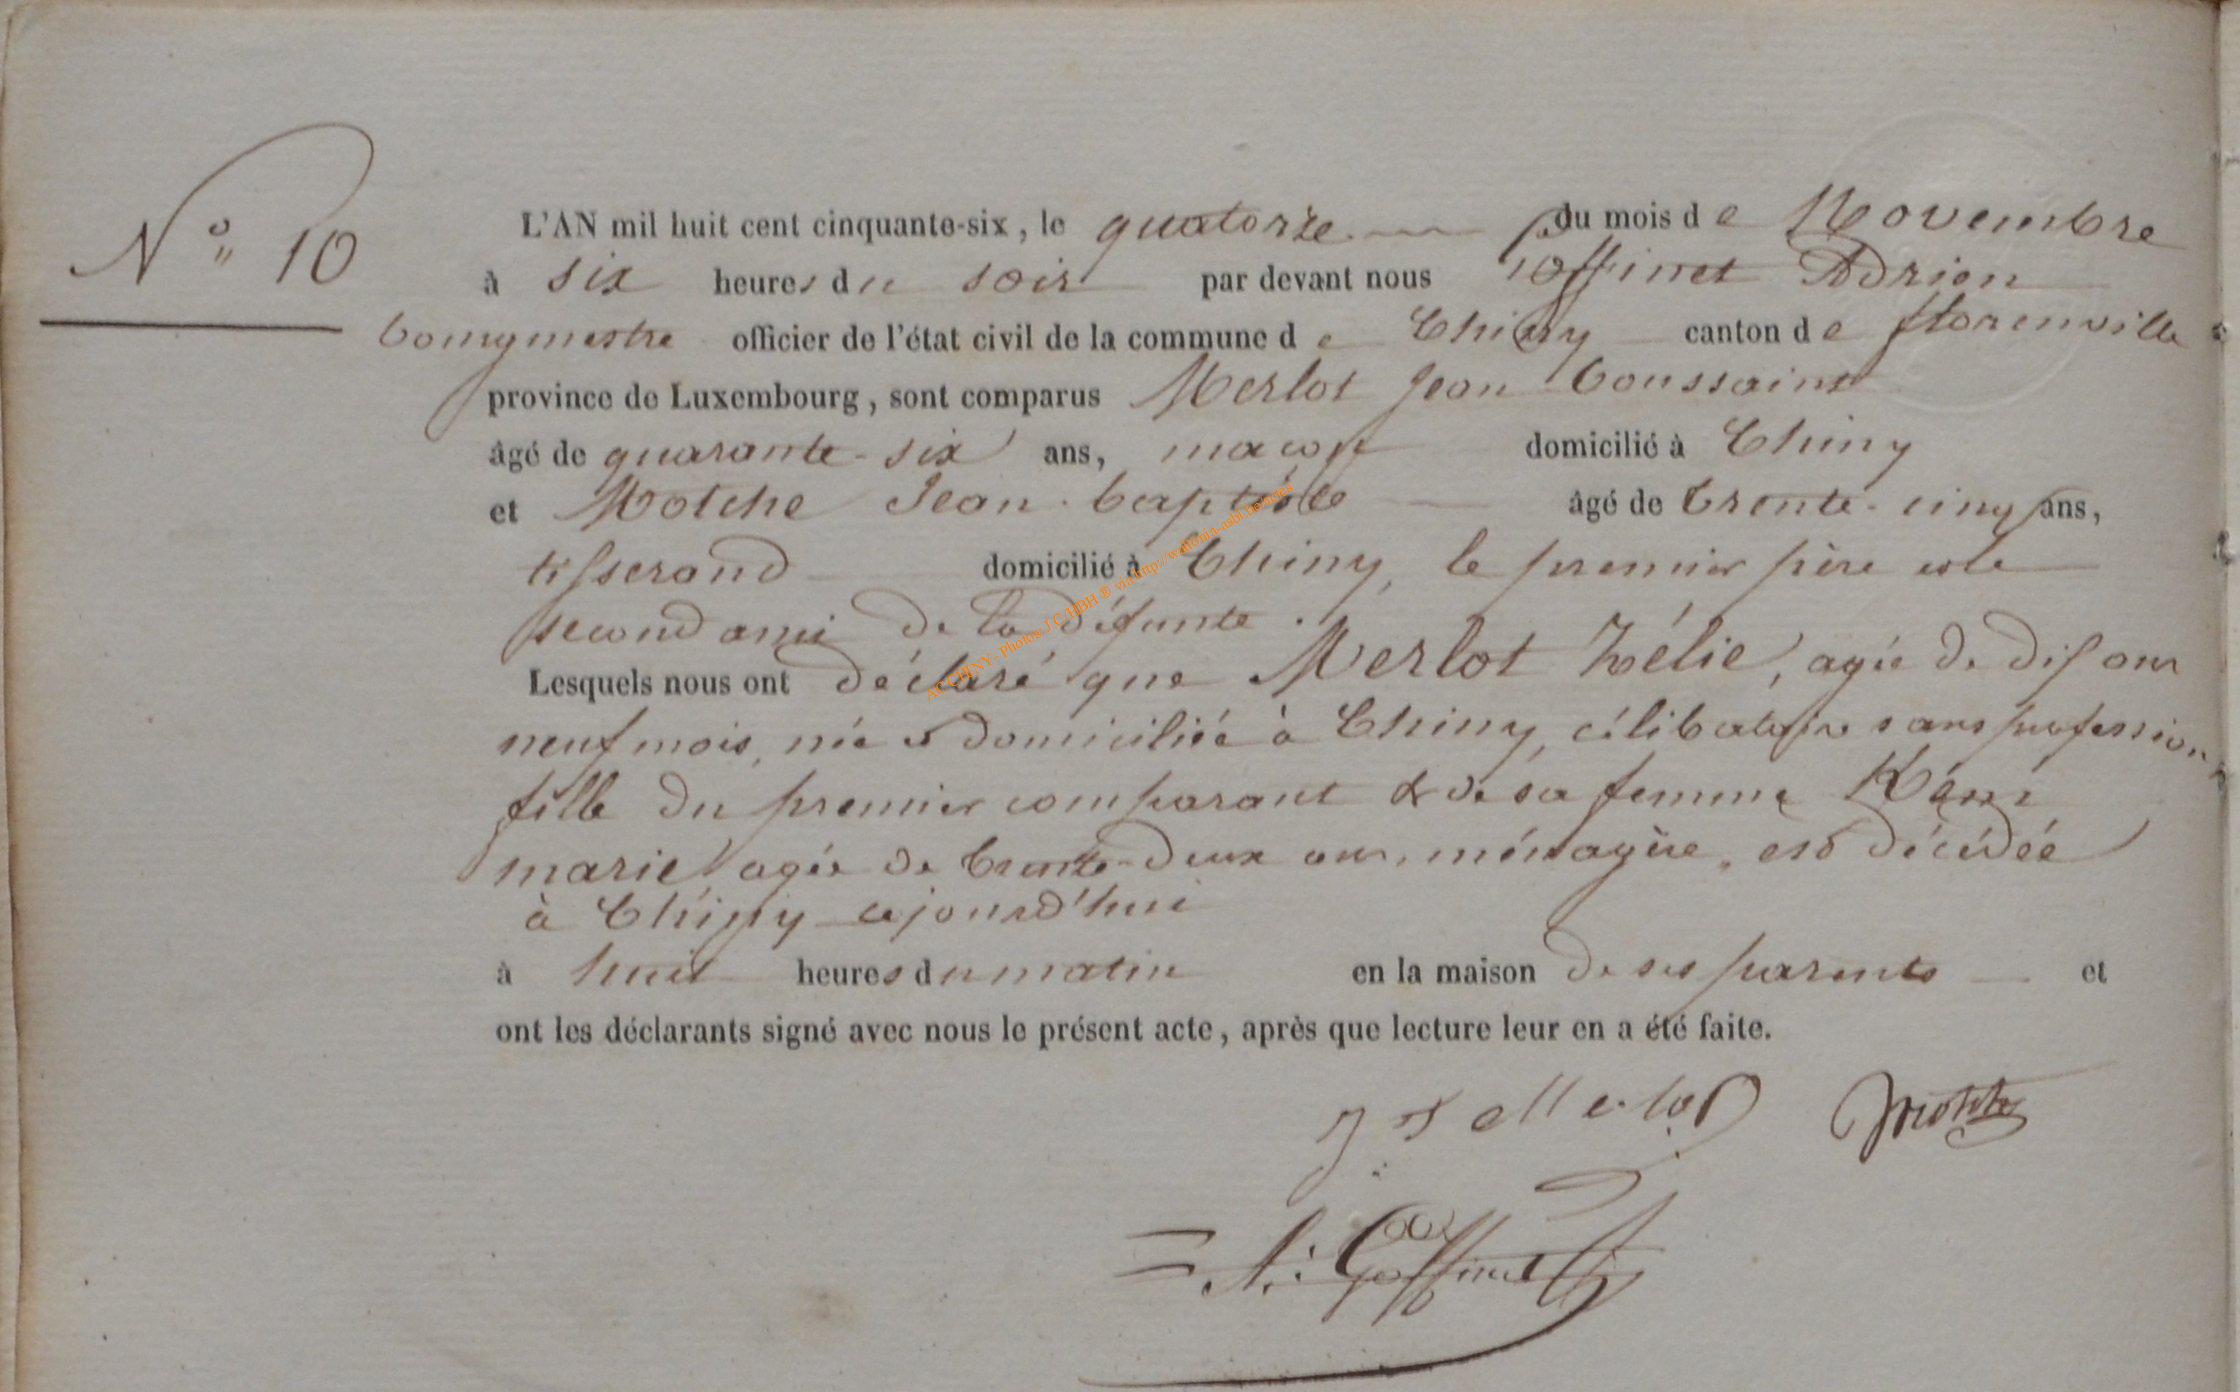 N° 10
L'AN mil huit cent cinquante-six, le quatorze du mois de Novembre
à six heures du soir par devant nous Goffinet Adrien
bourgmestre officier de l'état civil de la commune de Chiny canton de florenville
province de Luxembourg, sont comparus Merlot Jean toussaint
âgé de quarante-six ans, maçon domicilié à Chiny
et Motche Jean-baptiste âgé de trente-cinq ans,
tisserand domicilié à Chiny, le premier père et le
second ami de la défunte.
Lesquels nous ont déclaré que Merlot Zélie, agée de dix ans
neuf mois, née et domiciliée à Chiny, célibataire sans profession
fille du premier comparant & de sa femme
marie agée de trente-deux ans, ménagère, est décédée
à Chiny cejourd'hui
à huit heures du matin en la maison de ses parents et
ont les déclarants signé avec nous le présent acte, après que lecture leur en a été faite.
J T Merlot Motche
A: Goffinet
AC CHINY - Photos J.C.HBH ® via http://wallonia-asbl.be